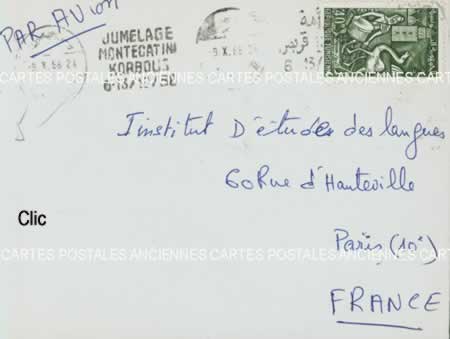 PAR AVION
JUMELAGE
MONTECATINI
KORBOUS
6-13/12/58
9.X.66.24
9.X.66
قربص
6 13/
l'institut D'études des langues
60 Rue d'Hauteville
Clic
Paris (10e)
CARTES POSTALES ANCIENNES CARTES POSTALES ANCIENNES CARTES POSTALES ANCIENNES
CARTES POSTALES ANCIENNES CARTES POSTALES ANCIENNES CARTES POSTALES ANCIENNES
FRANCE